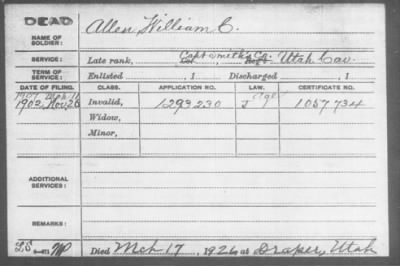 DEAD
NAME OF SOLDIER: Allen, William C.
SERVICE: Late rank, Capt Smith's Co. Utah Cav.
TERM OF SERVICE: Enlisted , 1 Discharged , 1
DATE OF FILING. CLASS. APPLICATION NO. LAW. CERTIFICATE NO.
1902, Nov. 26 Invalid, 1293230 J Age 1057734
Widow,
Minor,
ADDITIONAL SERVICES:
REMARKS:
Died Mch 17, 1926, at Draper, Utah